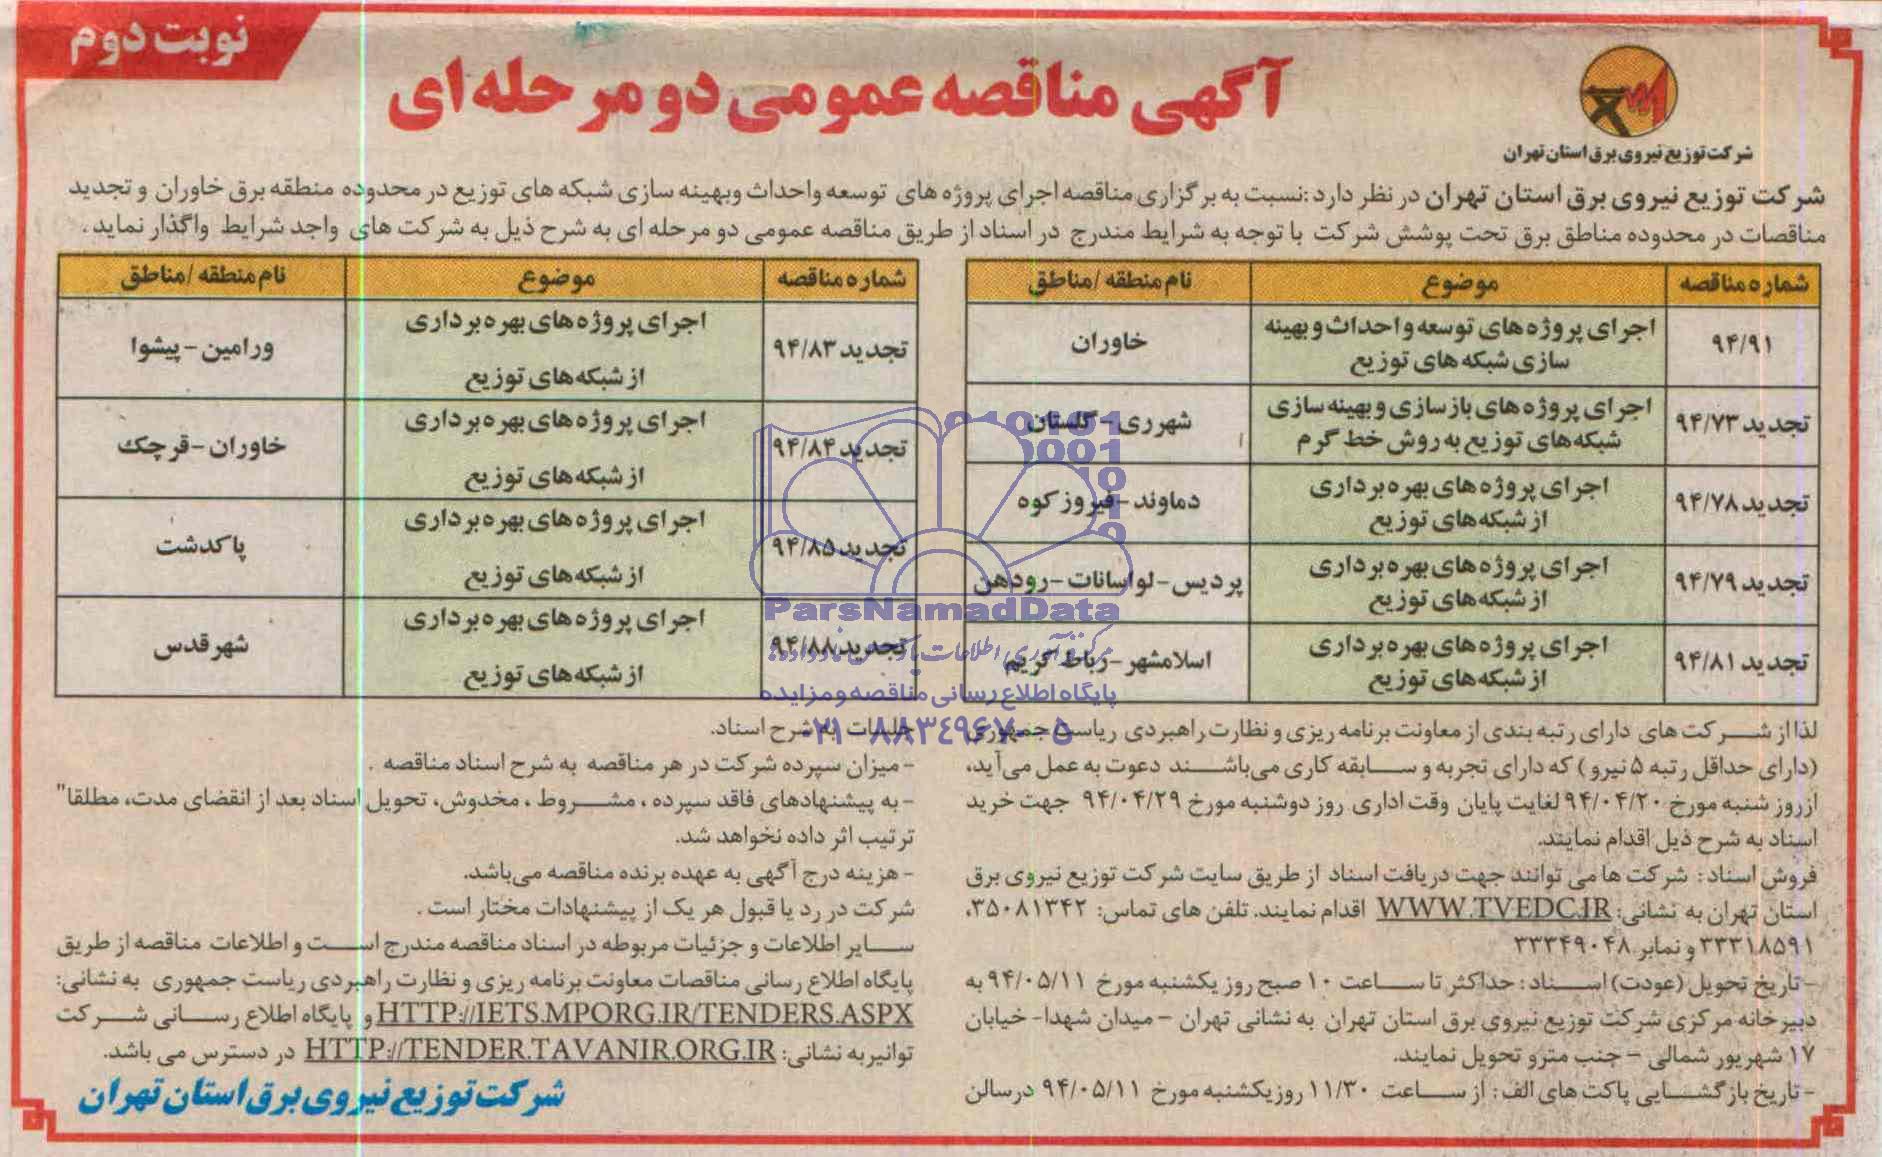 نوبت دوم
آگهی مناقصه عمومی دو مرحله ای
شرکت توزیع نیروی برق استان تهران
شرکت توزیع نیروی برق استان تهران در نظر دارد: نسبت به برگزاری مناقصه اجرای پروژه های توسعه واحداث وبهینه سازی شبکه های توزیع در محدوده منطقه برق خاوران و تجدید
مناقصات در محدوده مناطق برق تحت پوشش شرکت با توجه به شرایط مندرج در اسناد از طریق مناقصه عمومی دو مرحله ای به شرح ذیل به شرکت های واجد شرایط واگذار نماید.
شماره مناقصه موضوع نام منطقه /مناطق
۹۴/۹۱ اجرای پروژه های توسعه و احداث و بهینه خاوران
سازی شبکه های توزیع
تجدید ۹۴/۷۳ اجرای پروژه های بازسازی و بهینه سازی شهرری - گلستان
شبکه های توزیع به روش خط گرم
تجدید ۹۴/۷۸ اجرای پروژه های بهره برداری دماوند - فیروز کوه
از شبکه های توزیع
تجدید ۹۴/۷۹ اجرای پروژه های بهره برداری پردیس - لواسانات - رودهن
از شبکه های توزیع
تجدید ۹۴/۸۱ اجرای پروژه های بهره برداری اسلامشهر - رباط کریم
از شبکه های توزیع
شماره مناقصه موضوع نام منطقه /مناطق
تجدید ۹۴/۸۳ اجرای پروژه های بهره برداری ورامین - پیشوا
از شبکه های توزیع
تجدید ۹۴/۸۴ اجرای پروژه های بهره برداری خاوران - قرچک
از شبکه های توزیع
تجدید ۹۴/۸۵ اجرای پروژه های بهره برداری پاکدشت
از شبکه های توزیع
تجدید ۹۴/۸۸ اجرای پروژه های بهره برداری شهر قدس
از شبکه های توزیع
ParsNamadData
پایگاه اطلاع رسانی مناقصه و مزایده
۰۲۱-۸۸۳۴۹۶۷۰-۵
لذا از شرکت های دارای رتبه بندی از معاونت برنامه ریزی و نظارت راهبردی ریاست جمهوری
(دارای حداقل رتبه ۵ نیرو) که دارای تجربه و سابقه کاری می‌باشند دعوت به عمل می‌آید،
ازروز شنبه مورخ ۹۴/۰۴/۲۰ لغایت پایان وقت اداری روز دوشنبه مورخ ۹۴/۰۴/۲۹ جهت خرید
اسناد به شرح ذیل اقدام نمایند.
فروش اسناد: شرکت ها می توانند جهت دریافت اسناد از طریق سایت شرکت توزیع نیروی برق
استان تهران به نشانی: WWW.TVEDC.IR اقدام نمایند. تلفن های تماس: ۳۵۰۸۱۳۴۲،
۳۳۳۱۸۵۹۱ و نمابر ۳۳۳۴۹۰۴۸
- تاریخ تحویل (عودت) اسناد: حداکثر تا ساعت ۱۰ صبح روز یکشنبه مورخ ۹۴/۰۵/۱۱ به
دبیرخانه مرکزی شرکت توزیع نیروی برق استان تهران به نشانی تهران - میدان شهدا- خیابان
۱۷ شهریور شمالی - جنب مترو تحویل نمایند.
- تاریخ بازگشایی پاکت های الف: از ساعت ۱۱/۳۰ روز یکشنبه مورخ ۹۴/۰۵/۱۱ در سالن
جلسات به شرح اسناد.
- میزان سپرده شرکت در هر مناقصه به شرح اسناد مناقصه .
- به پیشنهادهای فاقد سپرده ، مشروط ، مخدوش، تحویل اسناد بعد از انقضای مدت، مطلقا"
ترتیب اثر داده نخواهد شد.
- هزینه درج آگهی به عهده برنده مناقصه می‌باشد.
شرکت در رد یا قبول هر یک از پیشنهادات مختار است .
سایر اطلاعات و جزئیات مربوطه در اسناد مناقصه مندرج است و اطلاعات مناقصه از طریق
پایگاه اطلاع رسانی مناقصات معاونت برنامه ریزی و نظارت راهبردی ریاست جمهوری به نشانی:
HTTP://IETS.MPORG.IR/TENDERS.ASPX و پایگاه اطلاع رسانی شرکت
توانیر به نشانی: HTTP://TENDER.TAVANIR.ORG.IR در دسترس می باشد.
شرکت توزیع نیروی برق استان تهران